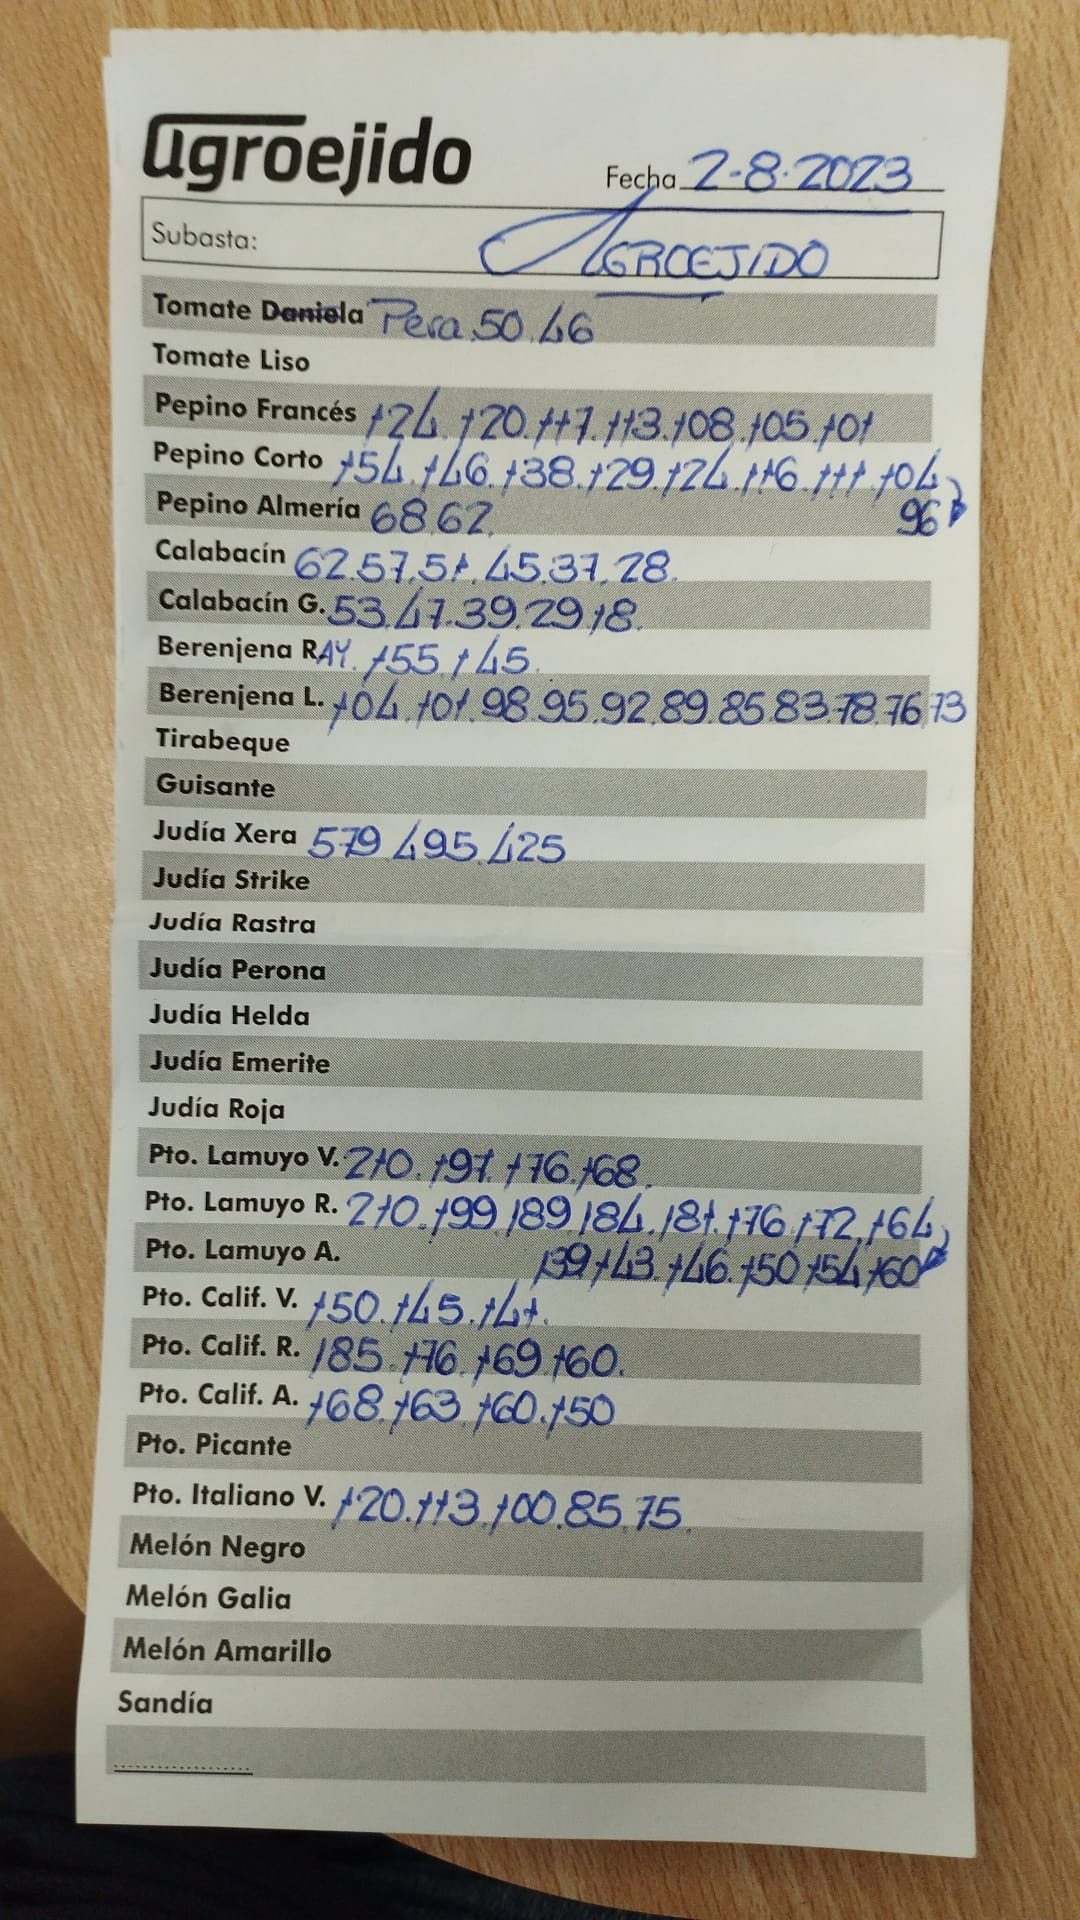 agroejido
Fecha 2-8-2023
Subasta: AGROEJIDO
Tomate Daniela Pera 50.46
Tomate Liso
Pepino Francés 124.120.117.113.108.105.101
Pepino Corto 154.146.138.129.124.116.111.104
Pepino Almería 68.62. 96
Calabacín 62.57.51.45.37.28.
Calabacín G. 53.47.39.29.18.
Berenjena RAY. 155.145.
Berenjena L. 104.101.98.95.92.89.85.83.78.76.73
Tirabeque
Guisante
Judía Xera 579.495.425
Judía Strike
Judía Rastra
Judía Perona
Judía Helda
Judía Emerite
Judía Roja
Pto. Lamuyo V. 210.197.176.168.
Pto. Lamuyo R. 210.199.189.184.181.176.172.164
Pto. Lamuyo A. 139.143.146.150.154.160
Pto. Calif. V. 150.145.141.
Pto. Calif. R. 185.176.169.160.
Pto. Calif. A. 168.163.160.150
Pto. Picante
Pto. Italiano V. 120.113.100.85.75.
Melón Negro
Melón Galia
Melón Amarillo
Sandía